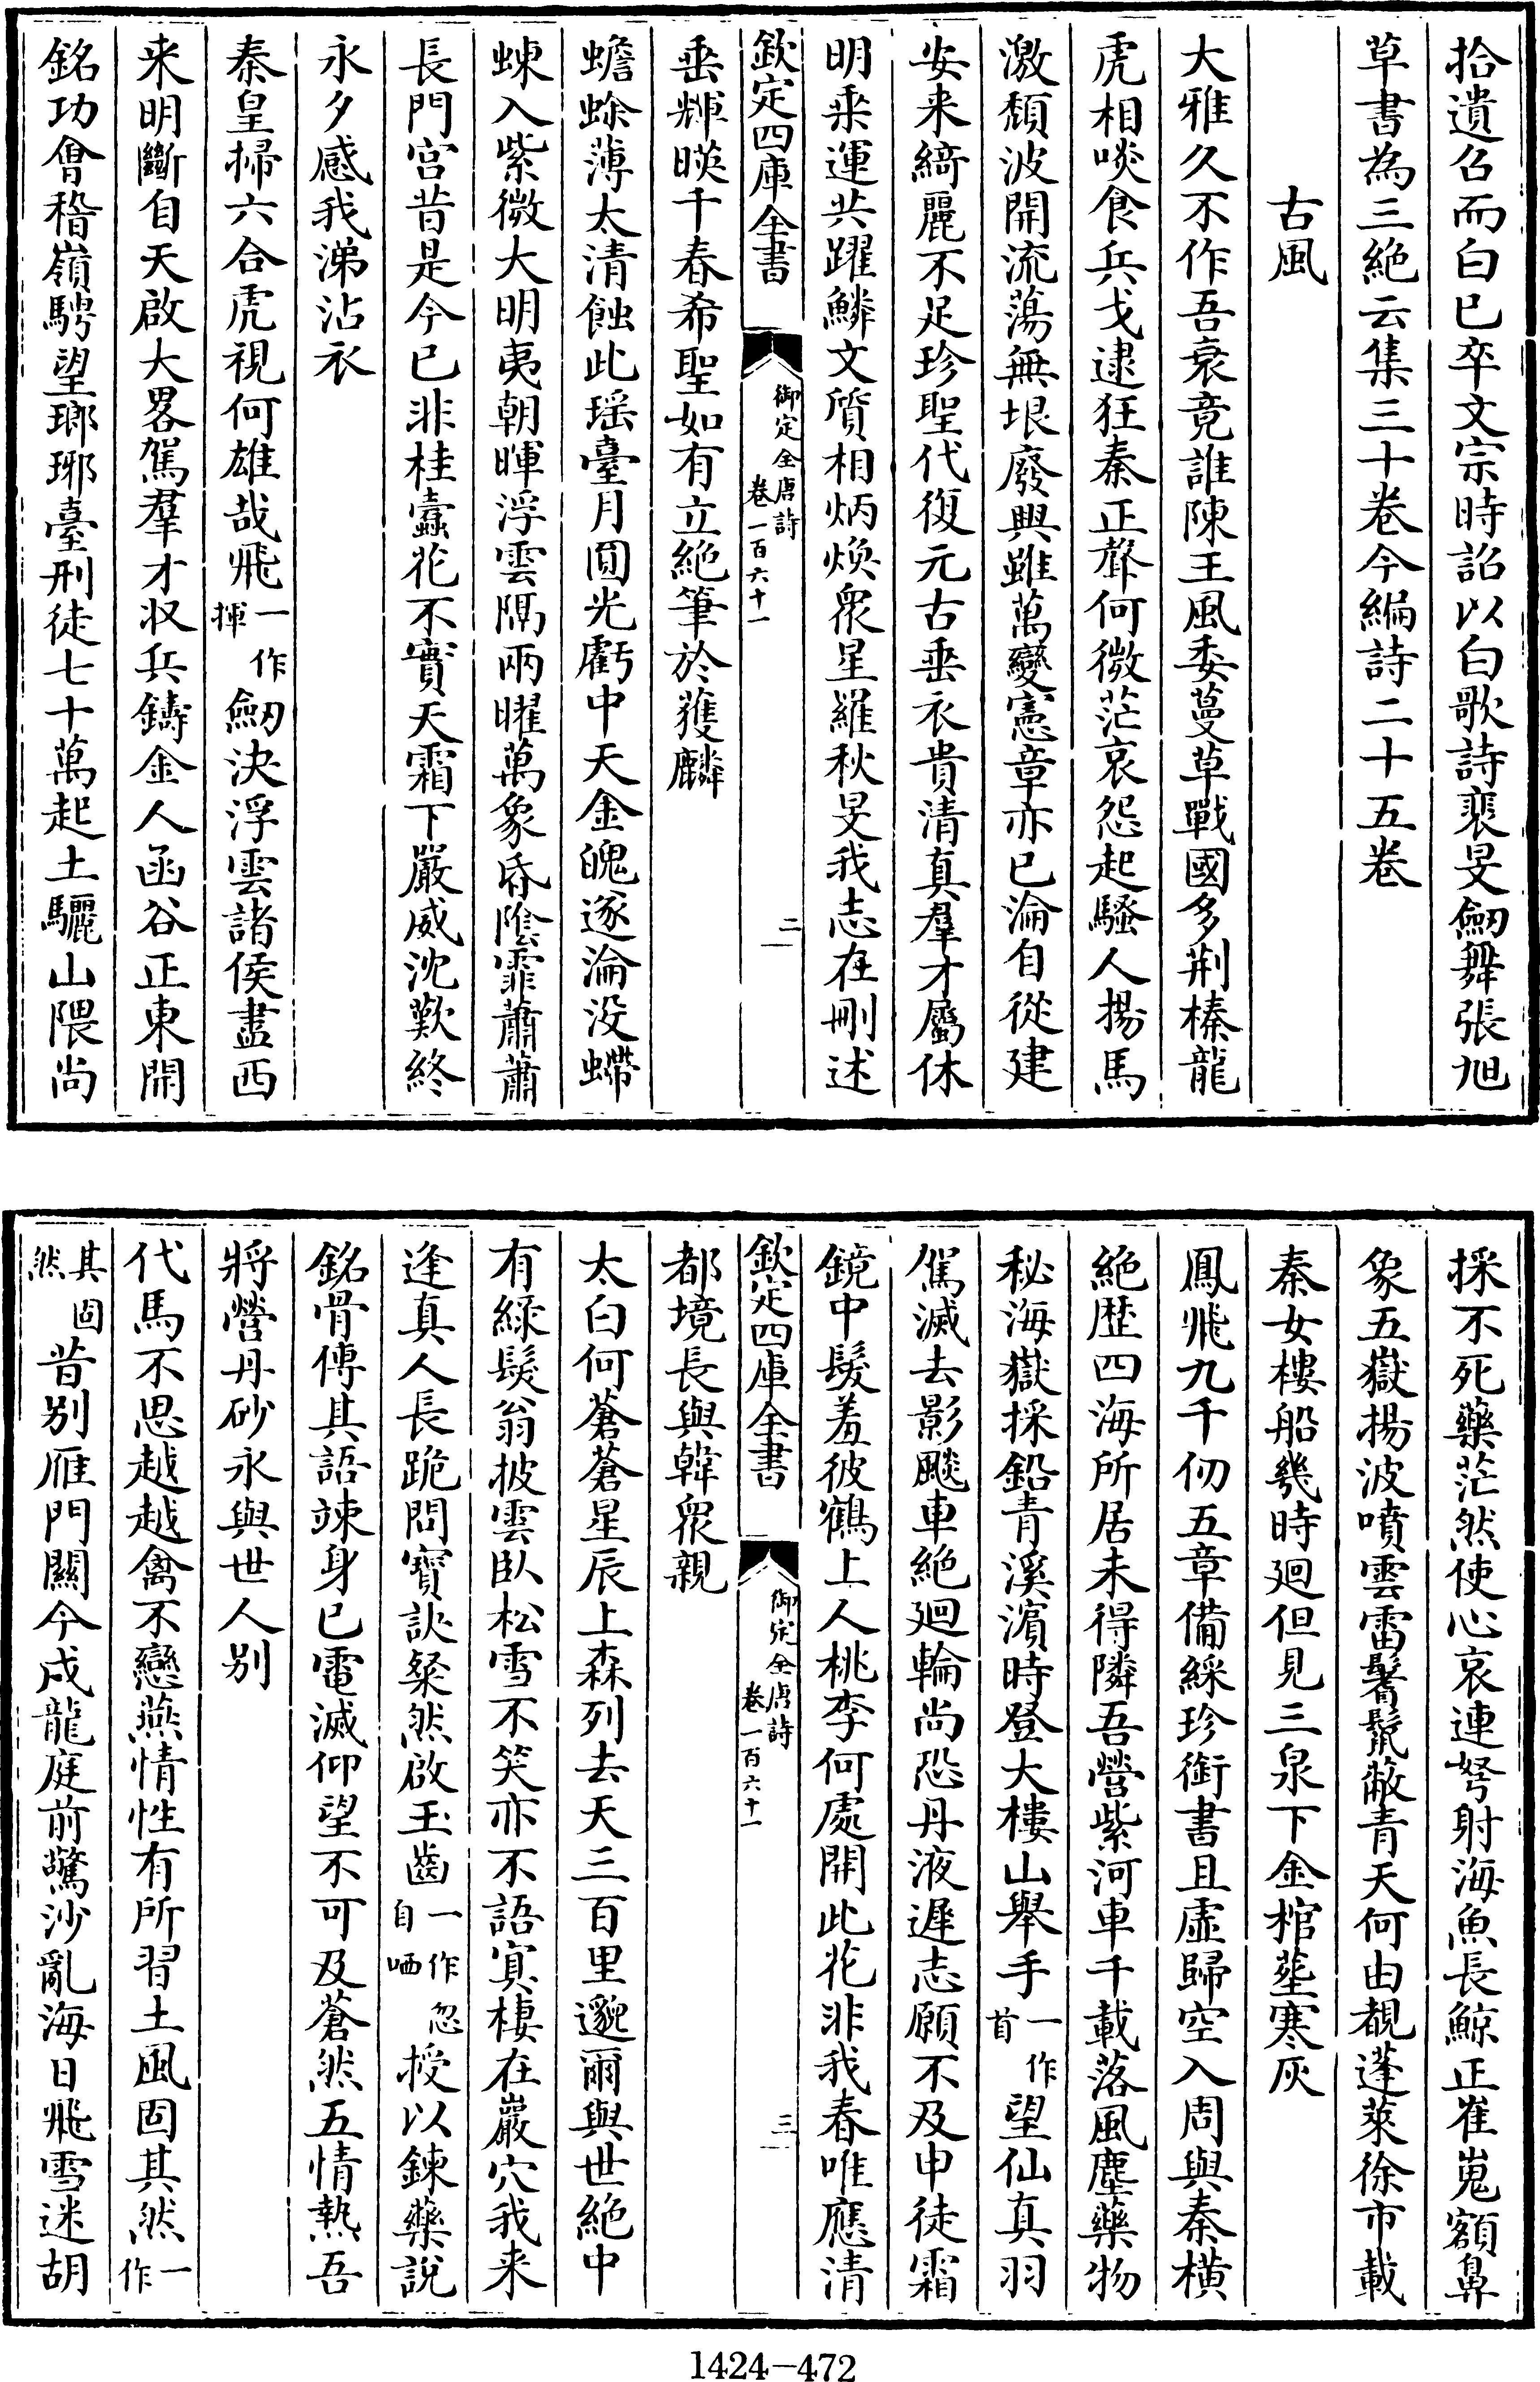 拾遺召而白已卒文宗時詔以白歌詩裴旻劒舞張旭
草書為三絶云集三十卷今編詩二十五卷
古風
大雅久不作吾衰竟誰陳王風委蔓草戰國多荆榛龍
虎相啖食兵戈逮狂秦正聲何微茫哀怨起騷人揚馬
激頽波開流蕩無垠廢興雖萬變憲章亦已淪自從建
安来綺麗不足珍聖代復元古垂衣貴清真羣才屬休
明乗運共躍鱗文質相炳煥衆星羅秋旻我志在刪述
欽定四庫全書
御定全唐詩
卷一百六十一
二
垂輝暎千春希聖如有立絶筆於獲麟
蟾蜍薄太清蝕此瑶臺月圓光虧中天金魄遂淪没螮
蝀入紫微大明夷朝暉浮雲隔兩曜萬象昏陰霏蕭蕭
長門宫昔是今已非桂蠹花不實天霜下嚴威沈歎終
永夕感我涕沾衣
秦皇掃六合虎視何雄哉飛一作揮劒決浮雲諸侯盡西
来明斷自天啟大畧駕羣才収兵鑄金人函谷正東開
銘功會稽嶺騁望瑯琊臺刑徒七十萬起土驪山隈尚
採不死藥茫然使心哀連弩射海魚長鯨正崔嵬額鼻
象五嶽揚波噴雲雷鬐鬛蔽青天何由覩蓬萊徐市載
秦女樓船幾時廻但見三泉下金棺葬寒灰
鳳飛九千仞五章備綵珍銜書且虚歸空入周與秦橫
絶歴四海所居未得隣吾營紫河車千載落風塵藥物
秘海嶽採鉛青溪濵時登大樓山舉手一作首望仙真羽
駕滅去影飇車絶廻輪尚恐丹液遲志願不及申徒霜
鏡中髮羞彼鶴上人桃李何處開此花非我春唯應清
欽定四庫全書
御定全唐詩
卷一百六十一
三
都境長與韓衆親
太白何蒼蒼星辰上森列去天三百里邈爾與世絶中
有緑髮翁披雲臥松雪不笑亦不語冥棲在巖穴我来
逢真人長跪問寶訣粲然啟玉齒一作忽自哂授以鍊藥說
銘骨傳其語竦身已電滅仰望不可及蒼然五情熱吾
將營丹砂永與世人别
代馬不思越越禽不戀燕情性有所習土風固其然一作
其固然昔别雁門關今戍龍庭前驚沙亂海日飛雪迷胡
1424-472